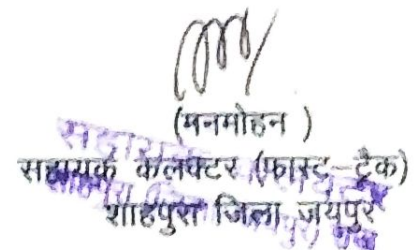 (मनमोहन )
सहायक कलक्टर (फास्ट-ट्रैक)
शाहपुरा जिला जयपुर